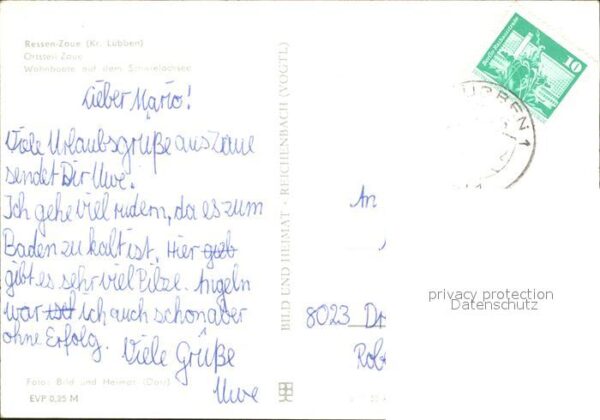 Ressen-Zaue (Kr. Lübben)
Ortsteil Zaue
Wohnboote auf dem Schwielochsee
Lieber Mario!
Viele Urlaubsgrüße aus Zaue
sendet Dir Uwe.
Ich gehe viel rudern, da es zum
Baden zu kalt ist. Hier geb
gibt es sehr viel Pilze. Angeln
war ich auch schon aber
ohne Erfolg.
Viele Grüße
Uwe
Foto: Bild und Heimat
EVP 0,25 M
BILD UND HEIMAT · REICHENBACH (VOGTL)
10
LÜBBEN 1
An
8023 Dr
Rob
privacy protection
Datenschutz